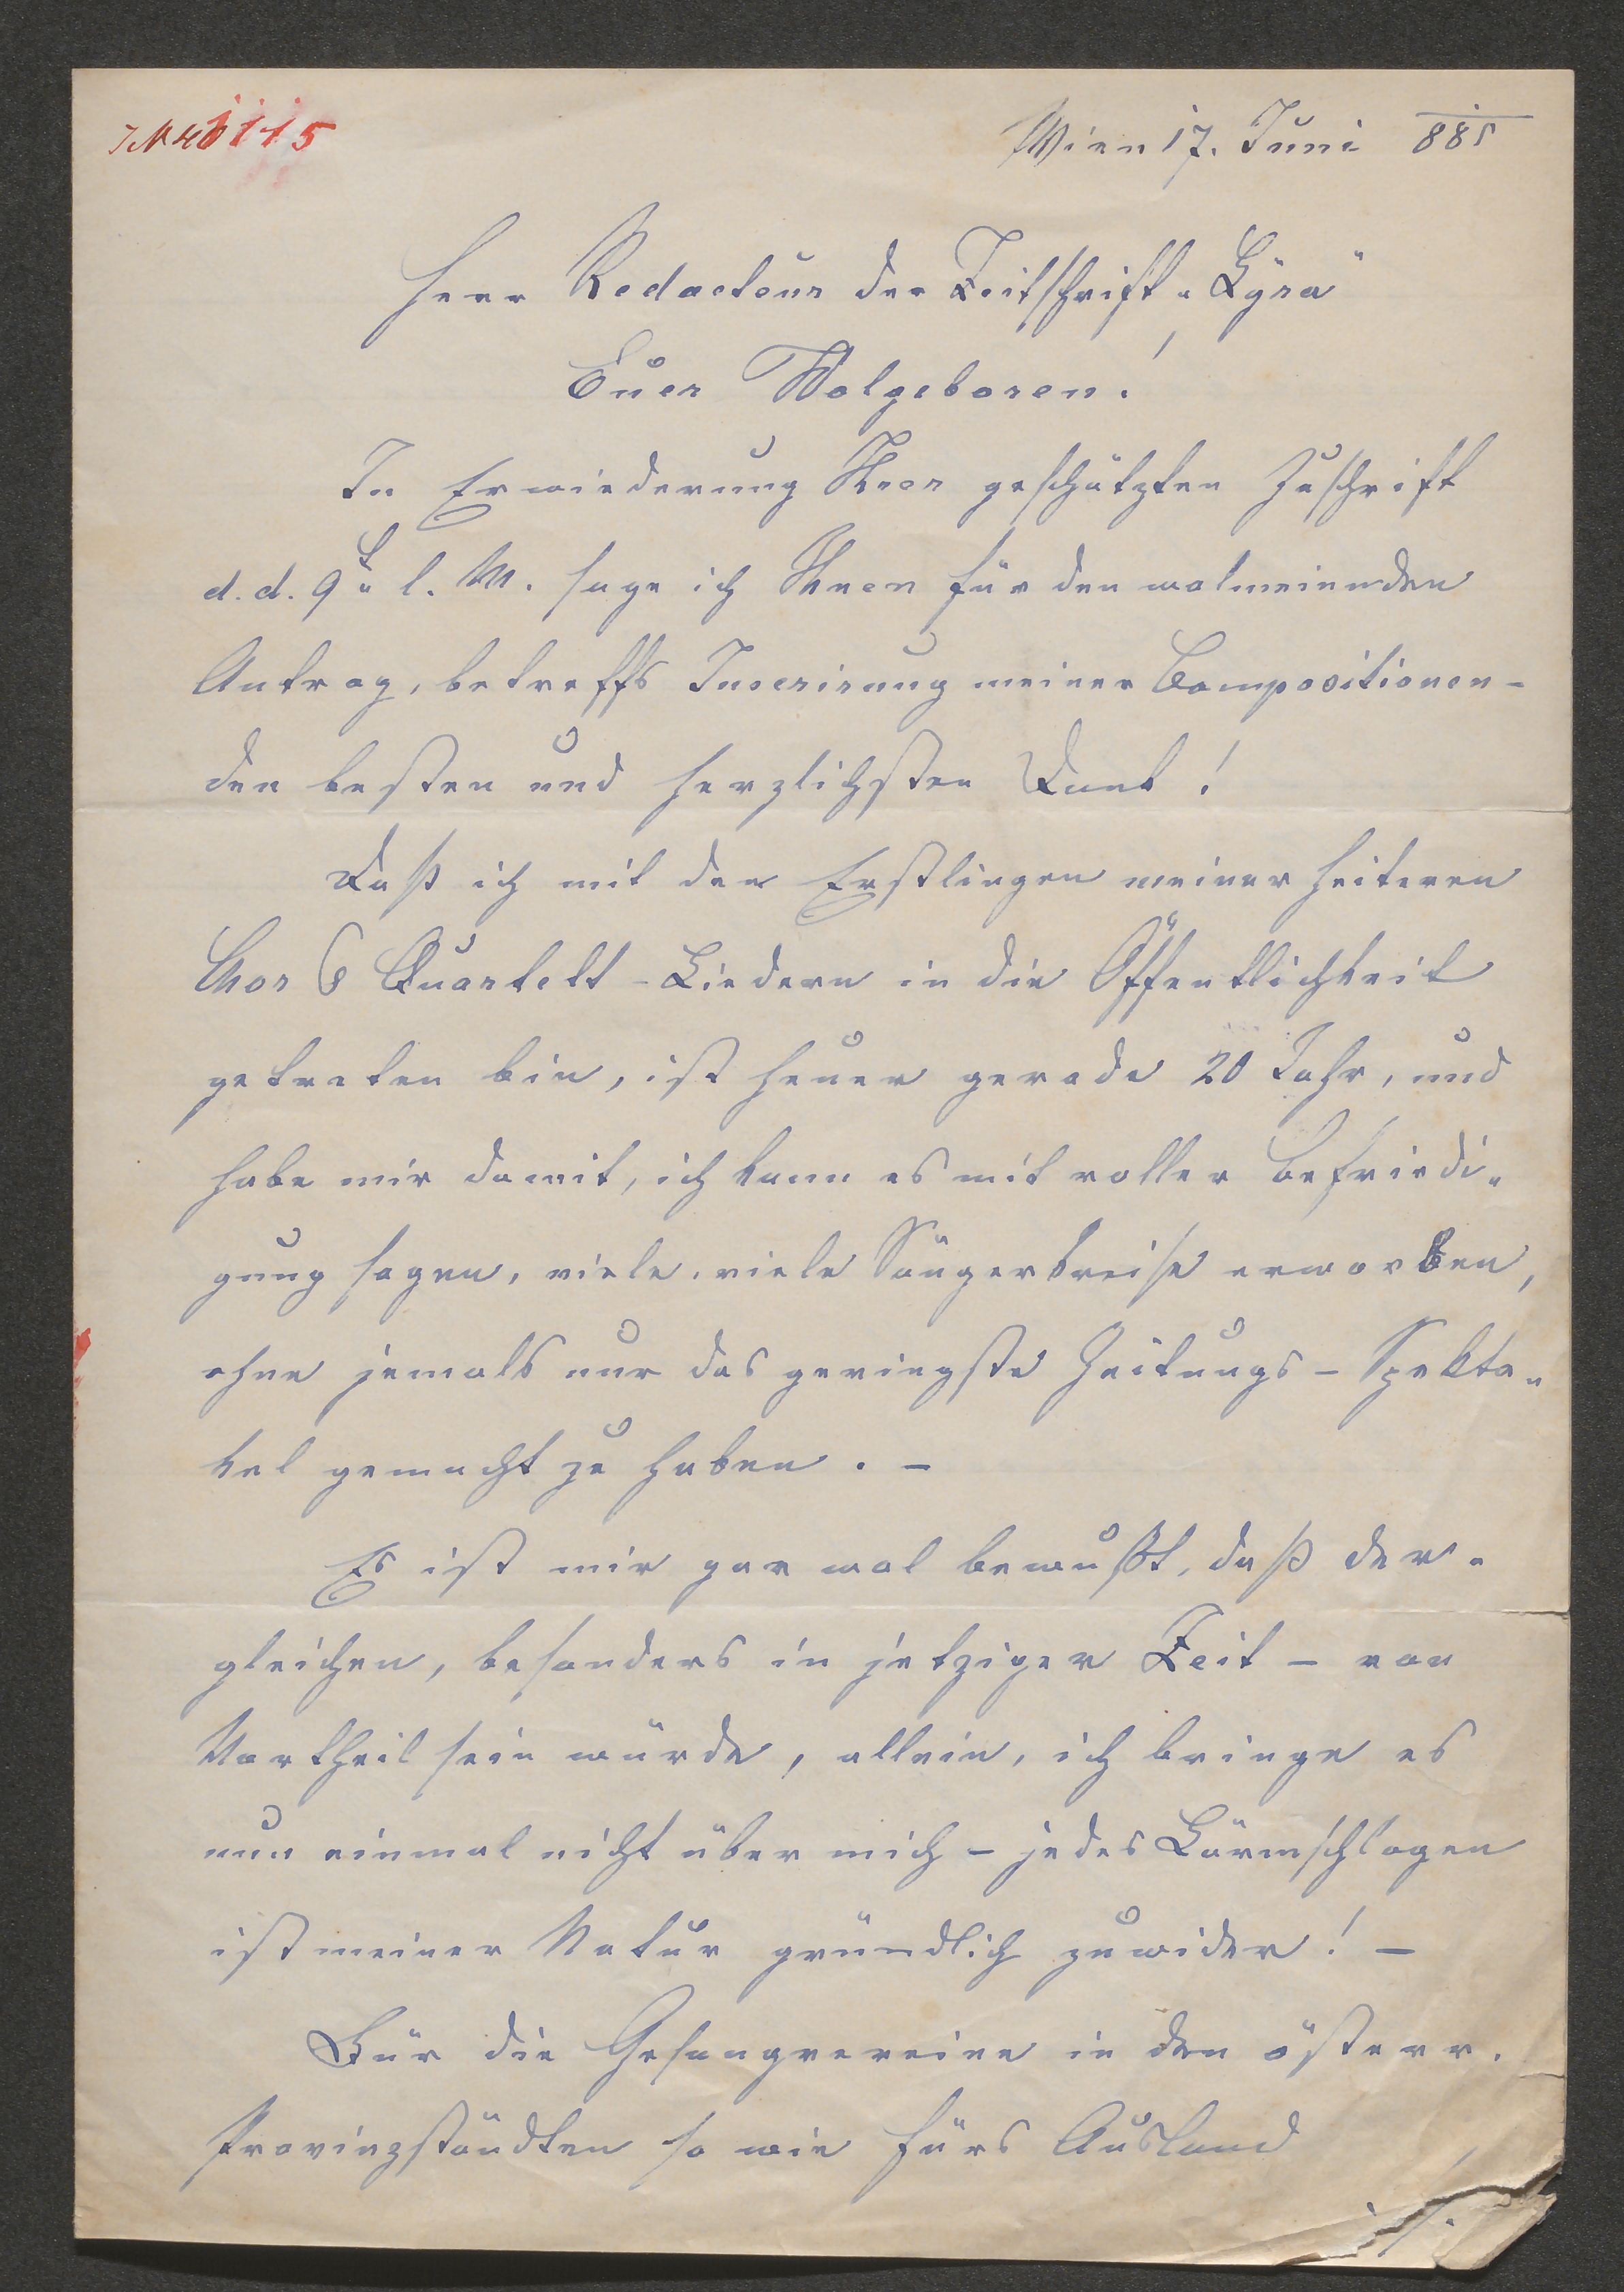 IN 40115
Wien 17. Juni 885
Herr Redacteur der Zeitschrift „Lÿra"
Euer Wolgeboren!
In Erwiederung Ihrer geschätzten Zuschrift
d. d. 9t l. M. sage ich Ihnen für den wolmeinenden
Antrag, betreffs Inserirung meiner Compositionen –
den besten und herzlichsten Dank!
Daß ich mit den Erstlingen meiner heiteren
Chor & Quartett-Liedern in die Öffentlichkeit
getreten bin, ist heuer gerade 20 Jahr, und
habe mir damit, ich kann es mit voller Befriedi„
gung sagen, viele, viele Sängerkreise erworben,
ohne jemals nur das geringste Zeitungs-Spekta„
kel gemacht zu haben. –
Es ist mir gar wol bewußt, daß der„
gleichen, besonders in jetziger Zeit – von
Vortheil sein würde, allein, ich bringe es
nun einmal nicht über mich – jedes Lärmschlagen
ist meiner Natur gründlich zuwider! –
Für die Gesangvereine in den österr.
Provinzstädten so wie fürs Ausland
./.